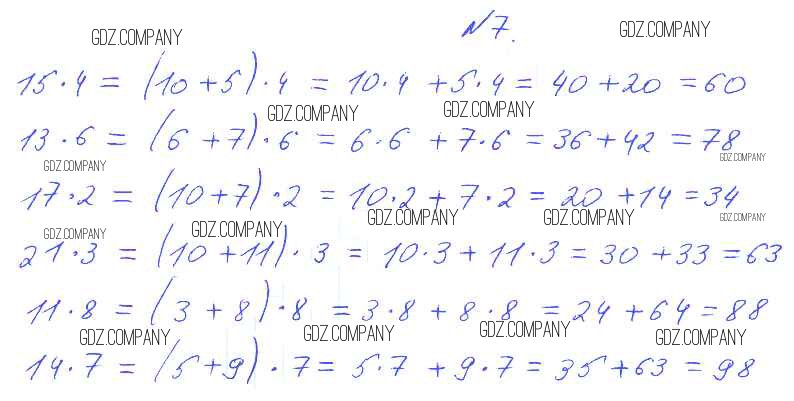 GDZ.COMPANY №7. GDZ.COMPANY
15·4 = (10+5)·4 = 10·4 +5·4 = 40+20 =60
GDZ.COMPANY GDZ.COMPANY
13·6 = (6+7)·6 = 6·6 +7·6 = 36+42 =78
GDZ.COMPANY GDZ.COMPANY
17·2 = (10+7)·2 = 10·2+7·2 = 20+14 =34
GDZ.COMPANY GDZ.COMPANY GDZ.COMPANY GDZ.COMPANY GDZ.COMPANY
21·3 = (10+11)·3 = 10·3+11·3 = 30+33 =63
11·8 = (3+8)·8 =3·8+8·8 = 24+64 =88
GDZ.COMPANY GDZ.COMPANY GDZ.COMPANY GDZ.COMPANY
14·7 = (5+9)·7= 5·7 +9·7 = 35+63 =98